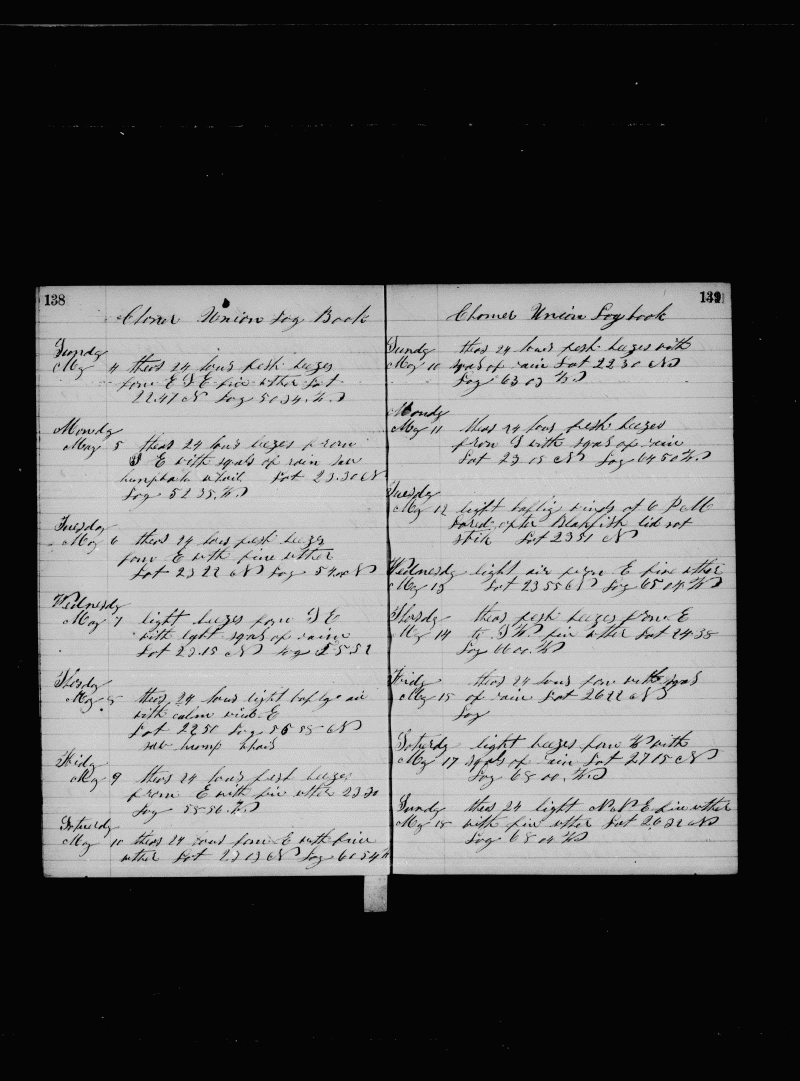 138
Union Log Book
Sundy
May 4 theas 24 lours fresh beezes
from E S E fine wther Lat
22.47 N Log 50 34 W
Mondy
May 5 theas 24 lours beezes from
S E with sqals of rain saw
humpback whail Lat 23.30 N
Log 52 35 W
Tuesday
May 6 theas 24 lours fresh beezes
from E with fine wther
Lat 23 22 N Log
Wednesdy
May 7 light beezes from S E
with lght sqals of rain
Lat 23.15 N Log 55 52
Thorsdy
May 8 theas 24 lours light air
with calm E
Lat 22 50 Log 56 58
saw hump whail
Fridy
May 9 theas 24 lours fresh beezes
from E with fin wther 23 30
Log 58 56 W
Saturdy
May 10 theas 24 lours from E with fine
wther Lat 23 03 N Log 60 54 W
139
Union Logbook
Sundy
May 10 theas 24 lours fresh beezes with
sqals of rain Lat 22 30 N
Log 63 03 W
Mondy
May 11 theas 24 lours fresh beezes
from S with sqals of rain
Lat 23 15 N Log 64 50 W
Tuesday
May 12 light winds at 6 P M
lored after Blakfish did not
strik Lat 23 51 N
Wednesdy
May 13 light air from E fine wther
Lat 23 55 N Log 65 04 W
Thorsdy
May 14 theas fresh beezes from E
to S W fin wther Lat 24 38
Log 66 00 W
Fridy
May 15 theas 24 lours from with sqals
of rain Lat 26 22 N
Log
Saturdy
May 17 light beezes from W with
sqals of rain Lat 27 15 N
Log 68 00 W
Sundy
May 18 theas 24 light N N E fin wther
with fin wther Lat 26 32 N
Log 68 04 W